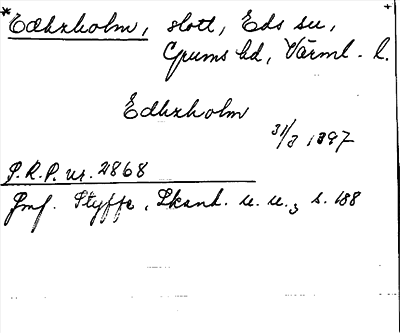 Edhxholm, slott, Eds sn,
Grums hd, Värml. l.
Edhxholm
31/3 1397
P.R.P. nr. 2868
Jmf. Styffe, Skand. u. u., s. 188